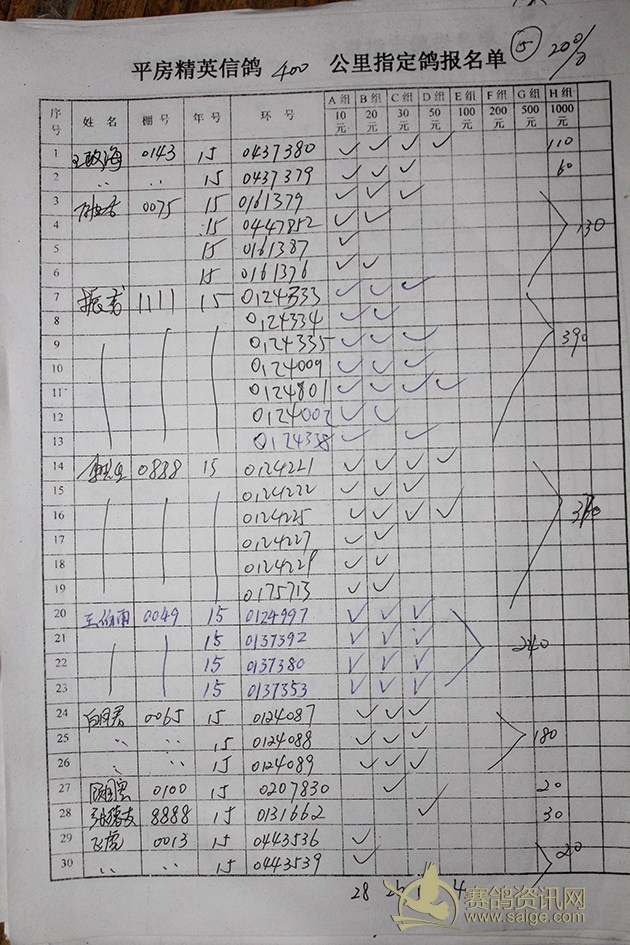 平房精英信鸽 400 公里指定鸽报名单 ⑤ 200/0
序号 姓 名 棚 号 年 号 环 号 A 组 10元 B 组 20元 C 组 30元 D 组 50元 E 组 100元 F 组 200元 G 组 500元 H 组 1000元
1 0143 15 0437380 ✓ ✓ ✓ ✓ 110
2 〃 〃 15 0437379 ✓ ✓ ✓ 60
3 0075 15 0161379 ✓ ✓ ✓
4 15 0447852 ✓ ✓ 130
5 15 0161387 ✓
6 15 0161376 ✓ ✓
7 1111 15 0124333 ✓ ✓ ✓
8 0124334 ✓ ✓
9 0124335 ✓ ✓ ✓ 390
10 0124009 ✓ ✓ ✓
11 0124801 ✓ ✓ ✓ ✓ ✓
12 0124002 ✓ ✓
13 0124338 ✓ ✓
14 0888 15 0124221 ✓ ✓ ✓ ✓
15 0124222 ✓ ✓ ✓
16 0124225 ✓ ✓ ✓ ✓
17 0124227 ✓ ✓
18 0124229 ✓ ✓
19 0175713 ✓ ✓
20 0049 15 0124997 ✓ ✓ ✓
21 15 0137392 ✓ ✓ ✓ 240
22 15 0137380 ✓ ✓ ✓
23 15 0137353 ✓ ✓ ✓
24 0065 15 0124087 ✓ ✓ ✓
25 〃 〃 15 0124088 ✓ ✓ ✓ 180
26 〃 〃 15 0124089 ✓ ✓ ✓
27 0100 15 0207830 ✓ 20
28 8888 15 0131662 ✓ 30
29 飞虎 0013 15 0443536 ✓
30 〃 〃 15 0443539 ✓ 20
28 4
赛鸽资讯网
www.saige.com